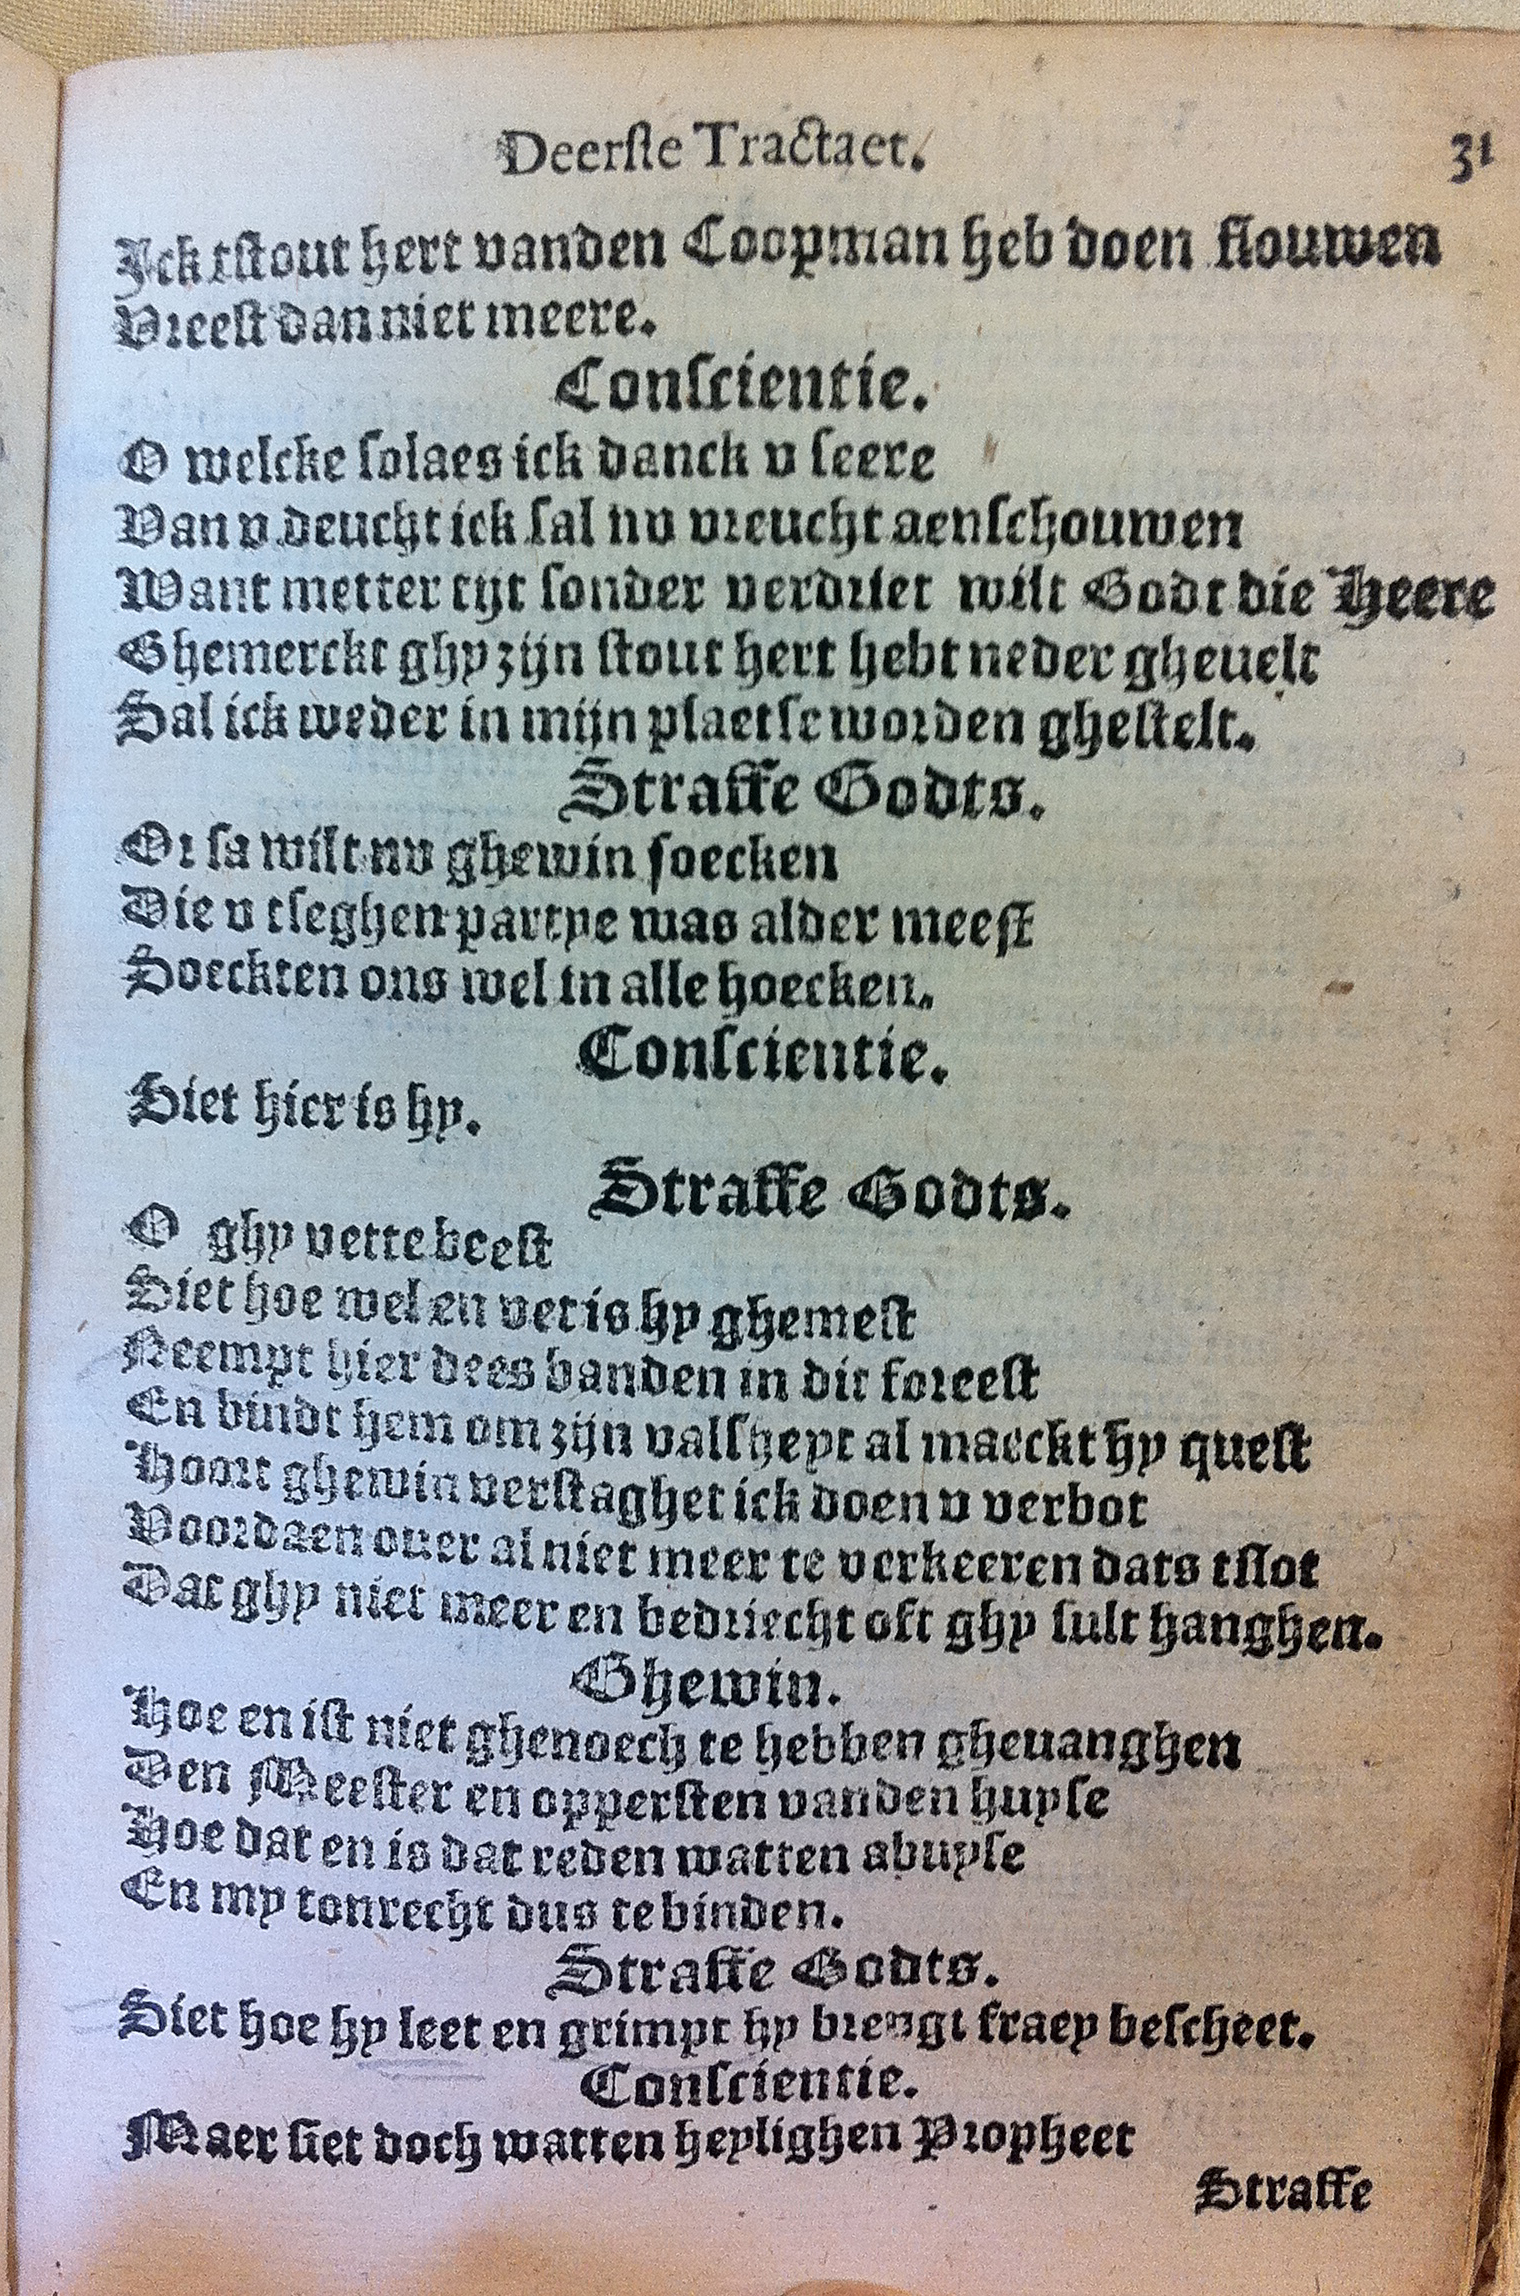 Deerste Tractaet. 31
Ick tstout hert vanden Coopman heb doen flouwen
Vreest dan niet meere.
Conscientie.
O welcke solaes ick danck v seere
Van v deucht ick sal nv vreucht aenschouwen
Want metter tijt sonder verdriet wilt Godt die Heere
Ghemerckt ghy zijn stout hert hebt neder gheuelt
Sal ick weder in mijn plaetse worden ghestelt.
Straffe Godts.
Or sa wilt nv ghewin soecken
Die v tseghen partye was alder meest
Soeckten ons wel in alle hoecken.
Conscientie.
Siet hier is hy.
Straffe Godts.
O ghy vette beest
Siet hoe wel en vet is hy ghemest
Neempt hier dees banden in dit foreest
En bindt hem om zijn valsheyt al maeckt hy quest
Hoort ghewin verstaghet ick doen v verbot
Voordaen ouer al niet meer te verkeeren dats tslot
Dat ghy niet meer en bedriecht oft ghy sult hanghen.
Ghewin.
Hoe en ist niet ghenoech te hebben gheuanghen
Den Meester en oppersten vanden huyse
Hoe dat en is dat reden watten abuyse
En my tonrecht dus te binden.
Straffe Godts.
Siet hoe hy leet en grimpt hy brengt fraey bescheet.
Conscientie.
Maer siet doch watten heylighen Propheet
Straffe